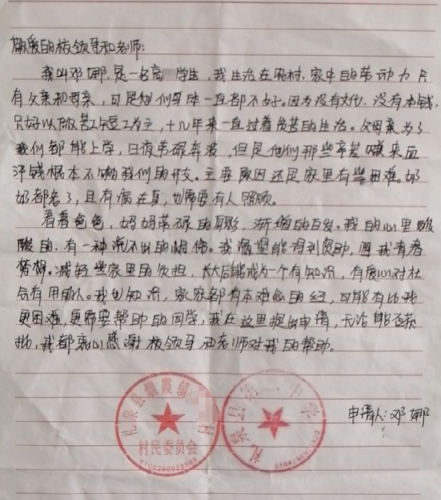 敬爱的校领导和老师:
我叫邓娜,是一名高 学生,我生活在农村,家中的劳动力只
有父亲和母亲,可是他们身体一直都不好。因为没有文化,没有本钱,
只好以做苦工短工为主,十几年来一直过着贫苦的生活。父母亲为了
我们都能上学,日夜劳碌奔波,但是他们那些辛苦赚来血
汗钱根本不够我们的开支。主要原因还是家里有些困难。奶
奶都老了,且有病在身,也需要有人照顾。
看着爸爸,妈妈劳碌的身影,渐增的白发。我的心里酸
酸的,有一种说不出的惆怅。我渴望能得到资助,圆我青春
梦想。减轻些家里的负担,长大后能成为一个有知识,有良心对社
会有用的人。我也知道,家家都有本难念的经,可能有比我
更困难,更需要帮助的同学,我在这里提出申请,无论能否获
批,我都衷心感谢校领导和老师对我的帮助。
申请人:邓娜
礼泉县烟霞镇 村
村民委员会
礼泉县第一中学